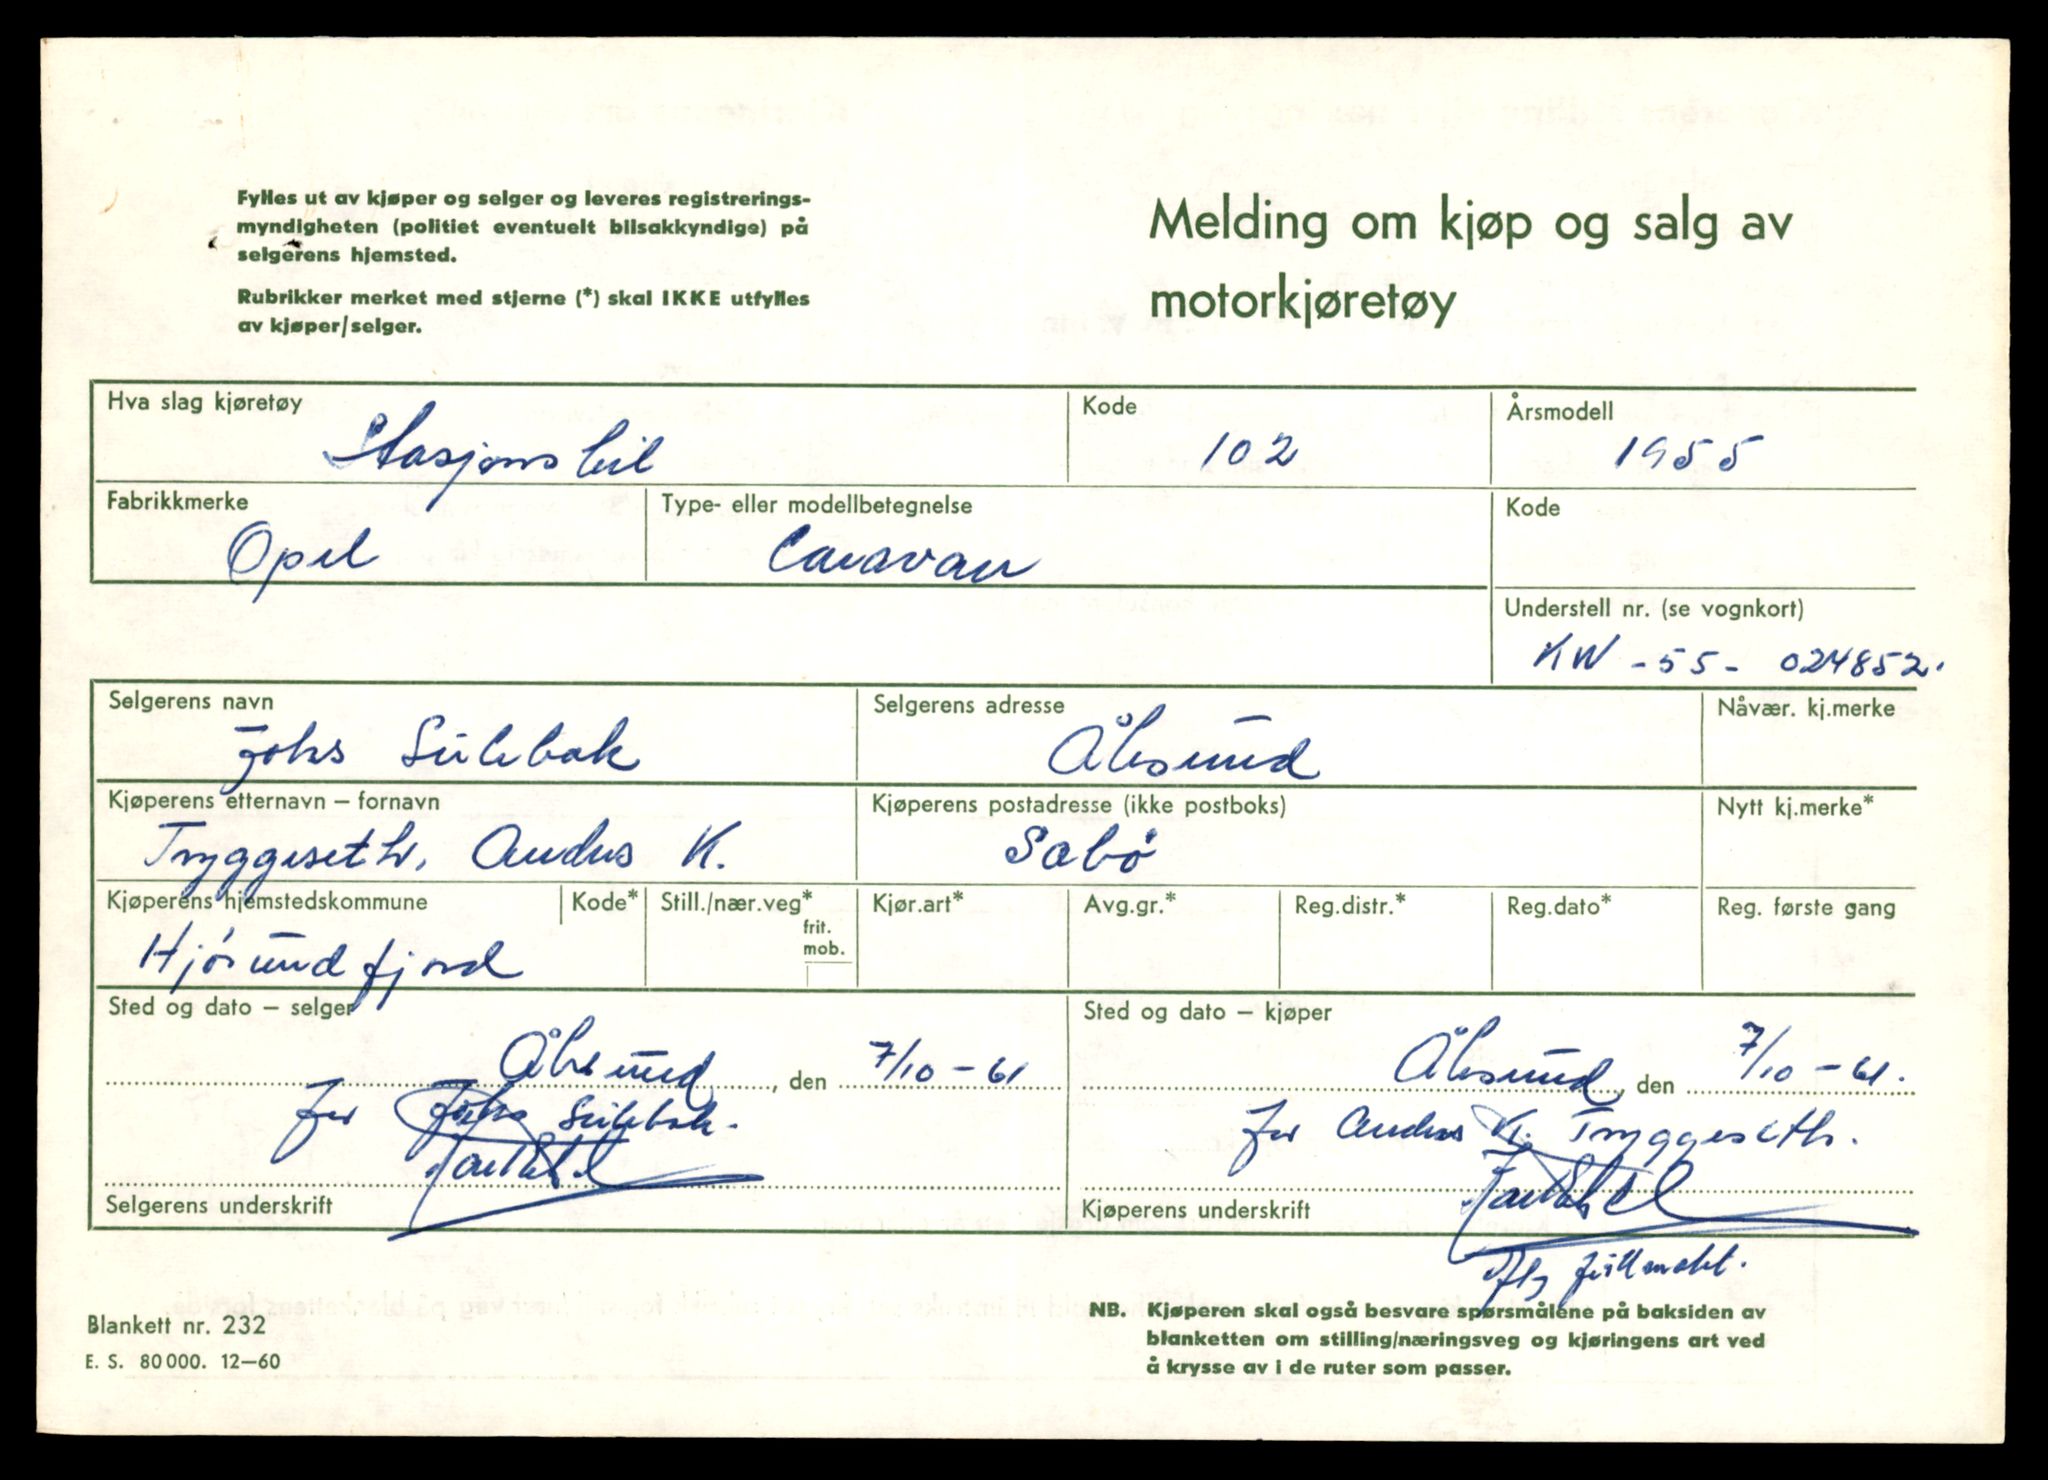 Fylles ut av kjøper og selger og leveres registrerings-
myndigheten (politiet eventuelt bilsakkyndige) på
selgerens hjemsted.
Rubrikker merket med stjerne (*) skal IKKE utfylles
av kjøper/selger.
Melding om kjøp og salg av
motorkjøretøy
Hva slag kjøretøy
Stasjonsbil
Kode
102
Årsmodell
1955
Fabrikkmerke
Opel
Type- eller modellbetegnelse
Caravan
Kode
Understell nr. (se vognkort)
KW - 55 - 024852.
Selgerens navn
Johs Sulebak
Selgerens adresse
Ålesund
Nåvær. kj.merke
Kjøperens etternavn – fornavn
Tryggeseth, Anders K.
Kjøperens postadresse (ikke postboks)
Sæbø
Nytt kj.merke*
Kjøperens hjemstedskommune
Hjørundfjord
Kode*
Still./nær.veg*
frit.
mob.
Kjør.art*
Avg.gr.*
Reg.distr.*
Reg.dato*
Reg. første gang
Sted og dato – selger
Ålesund, den 7/10 - 61
for Johs Sulebak.
Selgerens underskrift
Sted og dato – kjøper
Ålesund, den 7/10 - 61.
for Anders K. Tryggeseth.
Kjøperens underskrift
Ifly fullmakt.
Blankett nr. 232
E. S. 80 000. 12—60
NB. Kjøperen skal også besvare spørsmålene på baksiden av
blanketten om stilling/næringsveg og kjøringens art ved
å krysse av i de ruter som passer.